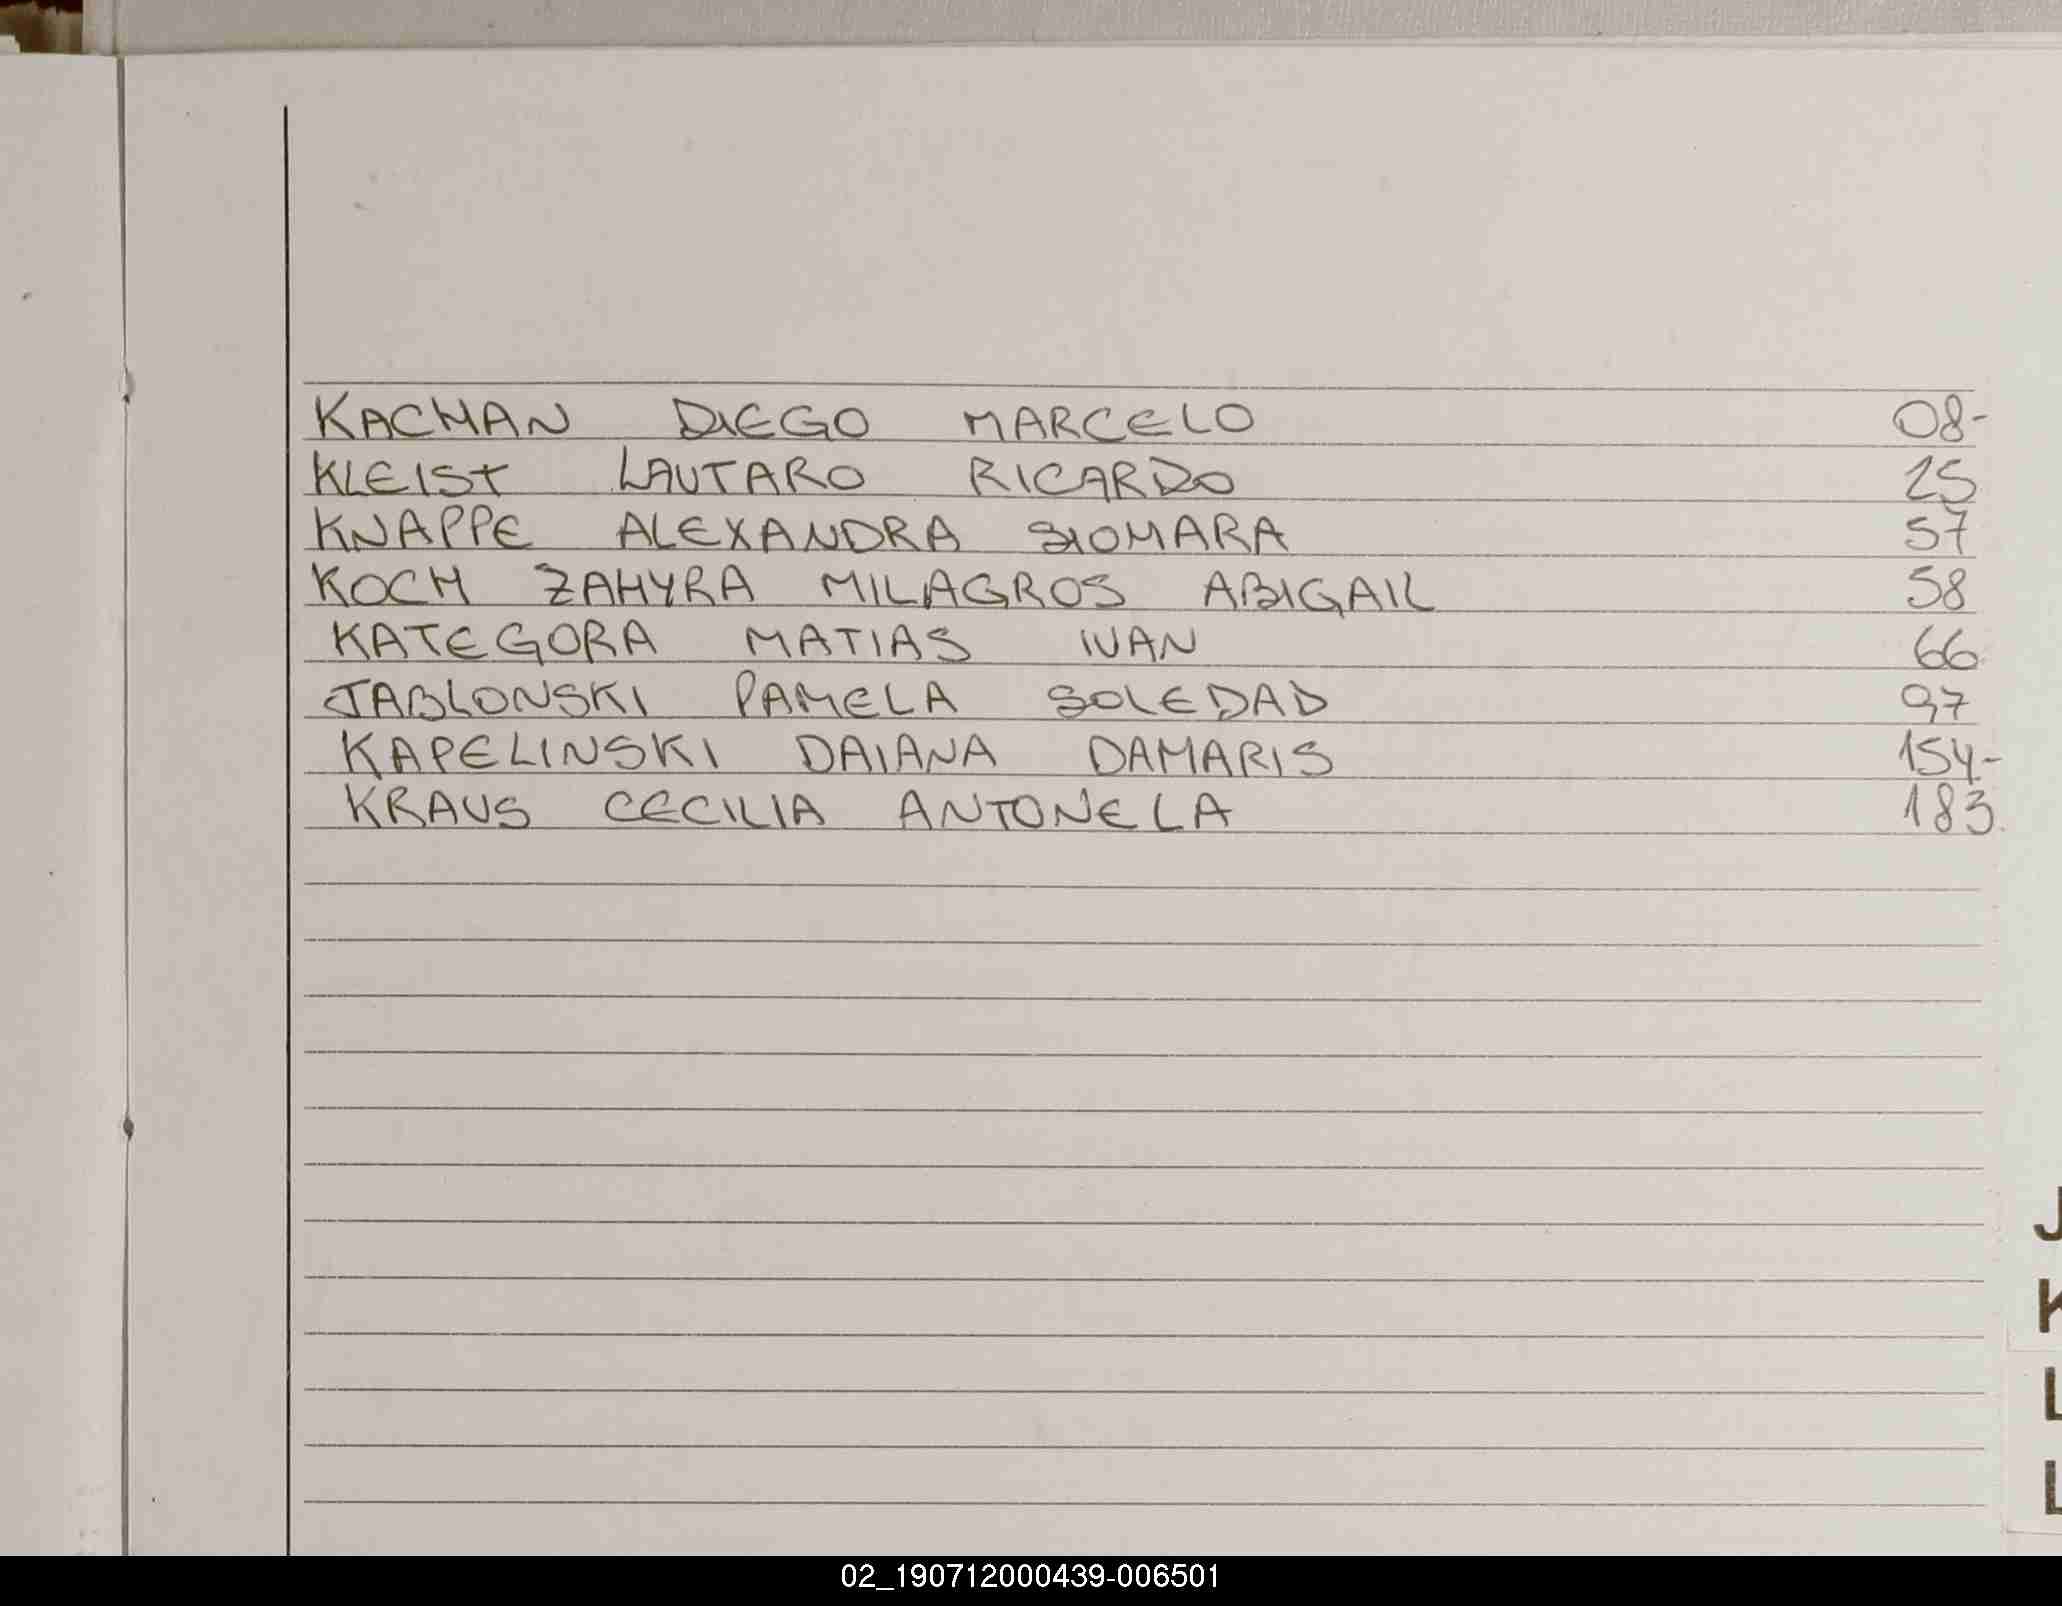 KACHAN DIEGO MARCELO 08-
KLEIST LAUTARO RICARDO 25
KNAPPE ALEXANDRA SIOMARA 57
KOCH ZAHYRA MILAGROS ABIGAIL 58
KATEGORA MATIAS IVAN 66
JABLONSKI PAMELA SOLEDAD 97
KAPELINSKI DAIANA DAMARIS 154-
KRAUS CECILIA ANTONELA 183.
J
K
L
L
02_190712000439-006501